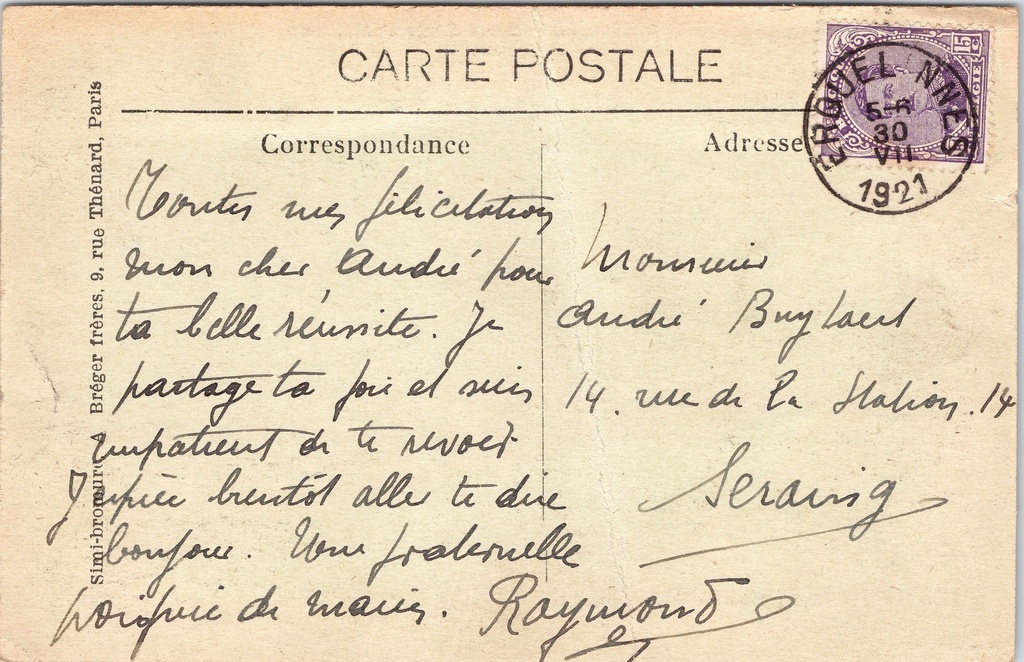 CARTE POSTALE
Correspondance
Adresse
Simi-bromure A Bréger frères, 9, rue Thénard, Paris
15 c
ERQUELINNES
5-6
30
VII
1921
Toutes mes félicitations
mon cher André pour
ta belle réussite. Je
partage ta joie et suis
impatient de te revoir
J'espère bientôt aller te dire
bonjour. Une fraternelle
poignée de mains. Raymond
Monsieur
André Buylaert
14. rue de la Station. 14
Seraing